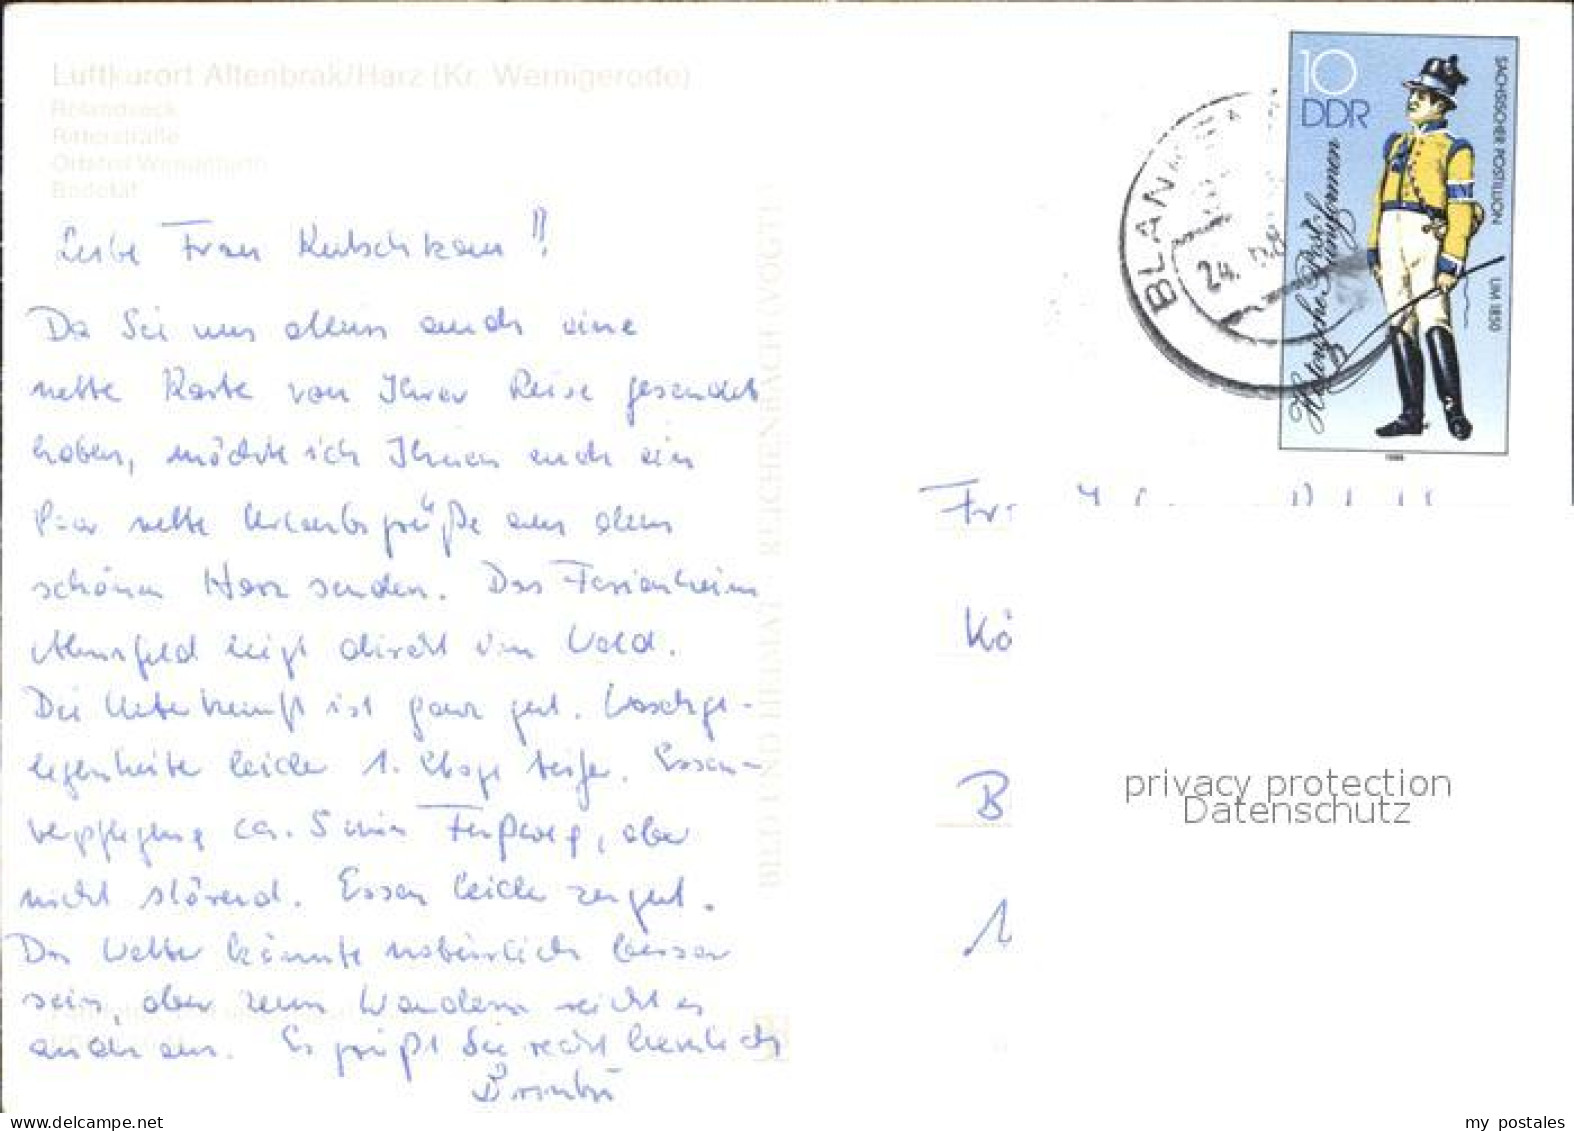 Luftkurort Altenbrak/Harz (Kr. Wernigerode)
Rolandseck
Ritterstraße
Ortsteil Wendefurth
Bodetal
Liebe Frau !!
Da Sie uns allen auch eine
nette Karte von Ihrer Reise gesendet
haben, möchte ich Ihnen auch ein
Paar nette Urlaubsgrüße aus dem
schönen Harz senden. Das Ferienheim
liegt direkt im Wald.
Die Unterkunft ist ganz gut. Waschge-
legenheiten leider 1. Etage tiefer. Essen-
verpflegung ca. 5 min Fußweg, aber
nicht störend. Essen leider zu gut.
Das Wetter könnte natürlich besser
sein, aber zum Wandern reicht es
auch aus. Es grüßt Sie recht herzlich
BILD UND HEIMAT REICHENBACH (VOGTL)
BLANKEN
24.
10
DDR
Historische Postuniformen
SÄCHSISCHER POSTILLION UM 1850
1986
Fr
Kö
B
1
privacy protection
Datenschutz
www.delcampe.net
my postales